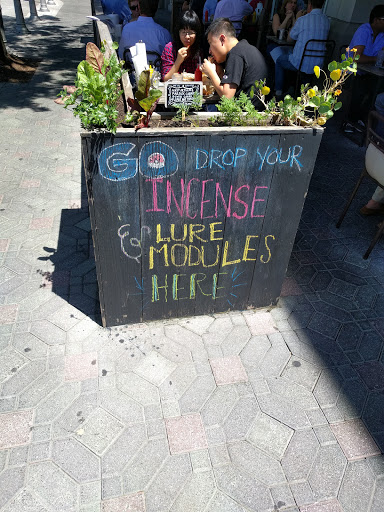 GO DROP YOUR
INCENSE
& LURE
MODULES
HERE